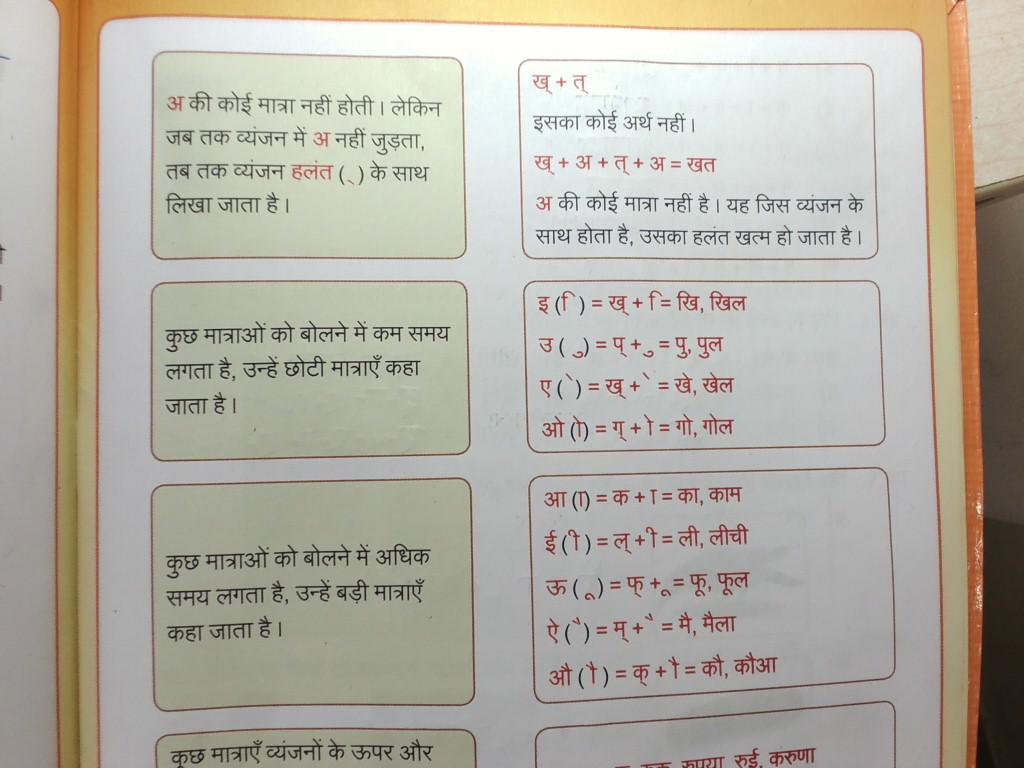 अ की कोई मात्रा नहीं होती। लेकिन
जब तक व्यंजन में अ नहीं जुड़ता,
तब तक व्यंजन हलंत (्) के साथ
लिखा जाता है।
ख् + त्
इसका कोई अर्थ नहीं।
ख् + अ + त् + अ = खत
अ की कोई मात्रा नहीं है। यह जिस व्यंजन के
साथ होता है, उसका हलंत खत्म हो जाता है।
कुछ मात्राओं को बोलने में कम समय
लगता है, उन्हें छोटी मात्राएँ कहा
जाता है।
इ (ि) = ख् + ि = खि, खिल
उ (ु) = प् + ु = पु, पुल
ए (े) = ख् + े = खे, खेल
ओ (ो) = ग् + ो = गो, गोल
कुछ मात्राओं को बोलने में अधिक
समय लगता है, उन्हें बड़ी मात्राएँ
कहा जाता है।
आ (ा) = क + ा = का, काम
ई (ी) = ल् + ी = ली, लीची
ऊ (ू) = फ् + ू = फू, फूल
ऐ (ै) = म् + ै = मै, मैला
औ (ौ) = क् + ौ = कौ, कौआ
कुछ मात्राएँ व्यंजनों के ऊपर और
रुपया, रुई, करुणा